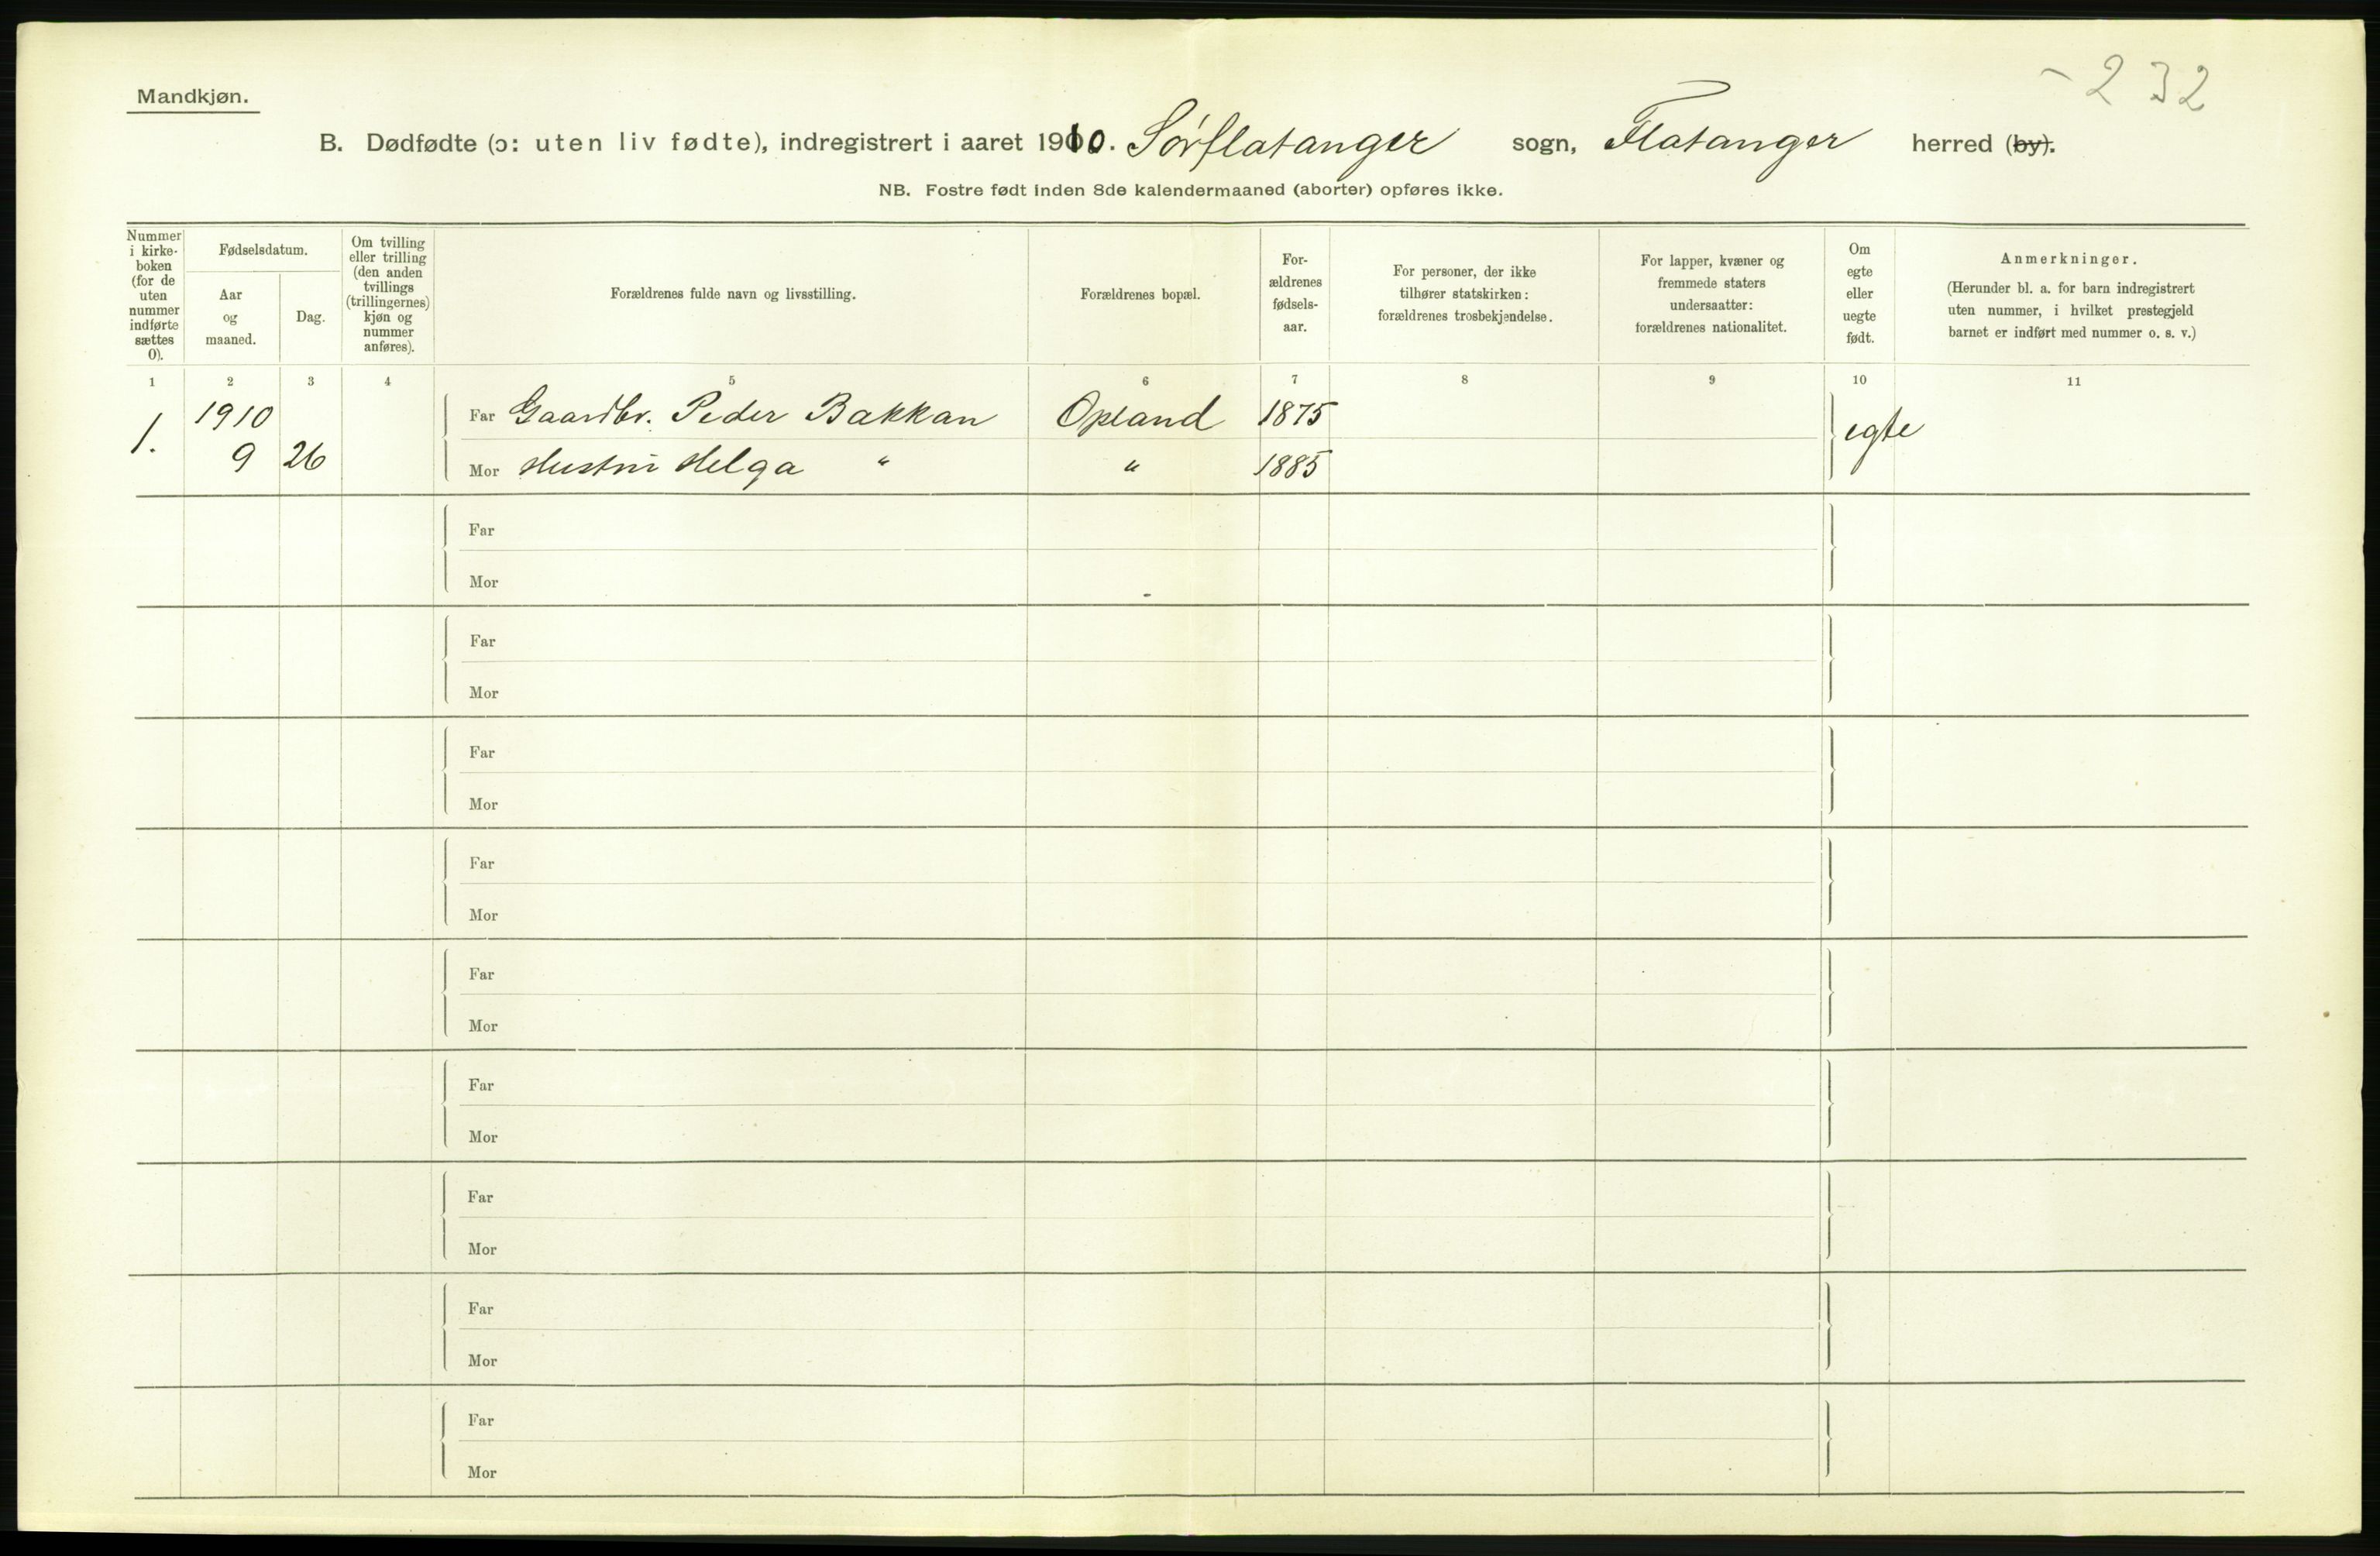 - 2 32
Mandkjøn.
B. Dødfødte (ɔ: uten liv fødte), indregistrert i aaret 1910. Sørflatanger sogn, Flatanger herred (by).
NB. Fostre født inden 8de kalendermaaned (aborter) opføres ikke.
Nummer i kirke-boken (for de uten nummer indførte sættes 0).
Fødselsdatum.
Aar og maaned.
Dag.
Om tvilling eller trilling (den anden tvillings (trillingernes) kjøn og nummer anføres).
Forældrenes fulde navn og livsstilling.
Forældrenes bopæl.
For-ældrenes fødsels-aar.
For personer, der ikke tilhører statskirken: forældrenes trosbekjendelse.
For lapper, kvæner og fremmede staters undersaatter: forældrenes nationalitet.
Om egte eller uegte født.
Anmerkninger.
(Herunder bl. a. for barn indregistrert uten nummer, i hvilket prestegjeld barnet er indført med nummer o. s. v.)
1 2 3 4 5 6 7 8 9 10 11
1. 1910 Far Gaardbr. Peder Bakkan Opland 1875 egte
9 26 Mor Hustru Helga " " 1885
Far
Mor
Far
Mor
Far
Mor
Far
Mor
Far
Mor
Far
Mor
Far
Mor
Far
Mor
Far
Mor